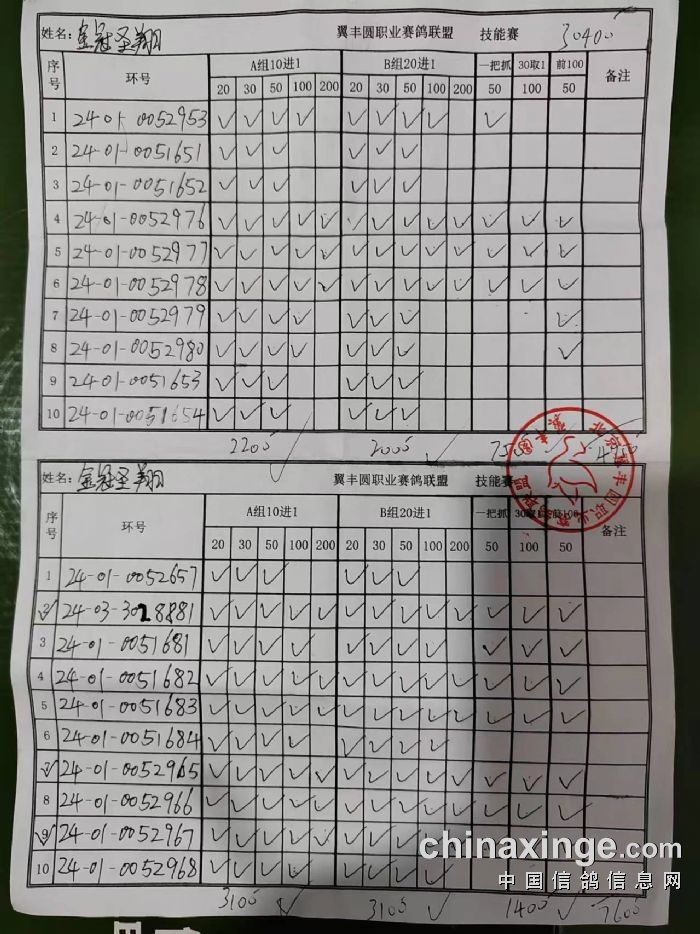 姓名: 金冠圣翔 翼丰圆职业赛鸽联盟 技能赛 30400
序号 环号 A组10进1 B组20进1 一把抓 30取1 前100 备注
20 30 50 100 200 20 30 50 100 200 50 100 50
1 24-01-0052953 ✓ ✓ ✓ ✓ ✓ ✓ ✓ ✓ ✓
2 24-01-0051651 ✓ ✓ ✓ ✓ ✓ ✓
3 24-01-0051652 ✓ ✓ ✓ ✓ ✓ ✓
4 24-01-0052976 ✓ ✓ ✓ ✓ ✓ ✓ ✓ ✓ ✓ ✓ ✓ ✓ ✓
5 24-01-0052977 ✓ ✓ ✓ ✓ ✓ ✓ ✓ ✓ ✓ ✓ ✓ ✓ ✓
6 24-01-0052978 ✓ ✓ ✓ ✓ ✓ ✓ ✓ ✓ ✓ ✓ ✓ ✓ ✓
7 24-01-0052979 ✓ ✓ ✓ ✓ ✓ ✓ ✓ ✓
8 24-01-0052980 ✓ ✓ ✓ ✓ ✓ ✓ ✓ ✓
9 24-01-0051653 ✓ ✓ ✓ ✓ ✓ ✓
10 24-01-0051654 ✓ ✓ ✓ ✓ ✓ ✓
2200 ✓ 2000 ✓
姓名: 金冠圣翔 翼丰圆职业赛鸽联盟 技能赛
序号 环号 A组10进1 B组20进1 一把抓 30取1 前100 备注
20 30 50 100 200 20 30 50 100 200 50 100 50
1 24-01-0052657 ✓ ✓ ✓ ✓ ✓ ✓
2 24-03-3028881 ✓ ✓ ✓ ✓ ✓ ✓ ✓ ✓ ✓ ✓ ✓ ✓ ✓
3 24-01-0051681 ✓ ✓ ✓ ✓ ✓ ✓ ✓ ✓ ✓ ✓ ✓
4 24-01-0051682 ✓ ✓ ✓ ✓ ✓ ✓ ✓ ✓ ✓ ✓ ✓ ✓ ✓
5 24-01-0051683 ✓ ✓ ✓ ✓ ✓ ✓ ✓ ✓ ✓ ✓ ✓ ✓ ✓
6 24-01-0051684 ✓ ✓ ✓ ✓ ✓ ✓ ✓ ✓
7 24-01-0052965 ✓ ✓ ✓ ✓ ✓ ✓ ✓ ✓ ✓ ✓ ✓ ✓ ✓
8 24-01-0052966 ✓ ✓ ✓ ✓ ✓ ✓ ✓ ✓ ✓ ✓ ✓ ✓ ✓
9 24-01-0052967 ✓ ✓ ✓ ✓ ✓ ✓ ✓ ✓
10 24-01-0052968 ✓ ✓ ✓ ✓ ✓ ✓ ✓ ✓
chinaxinge.com
中国信鸽信息网
3100 ✓ 3100 ✓ 1400 ✓ 7600